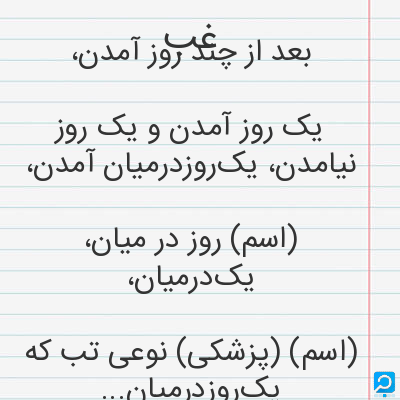 غب
بعد از چند روز آمدن،
یک روز آمدن و یک روز
نیامدن، یک‌روزدرمیان آمدن،
(اسم) روز در میان،
یک‌درمیان،
(اسم) (پزشکی) نوعی تب که
یک‌روزدرمیان...